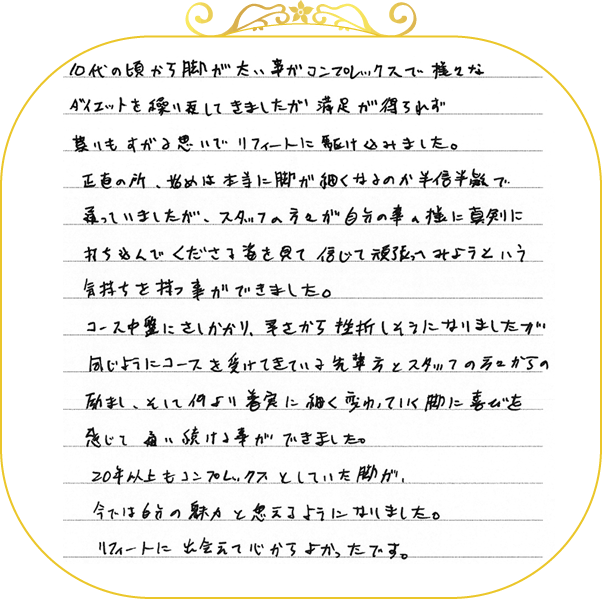 10代の頃から脚が太い事がコンプレックスで様々な
ダイエットを繰り返してきましたが満足が得られず
藁いもすがる思いでリフィートに駆け込みました。
正直の所、始めは本当に脚が細くなるのか半信半疑で
通っていましたが、スタッフの方々が自分の事の様に真剣に
打ち込んでくださる姿を見て信じて頑張ってみようという
気持ちを持つ事ができました。
コース中盤にさしかかり、辛さから挫折しそうになりましたが
同じようにコースを受けてきている先輩方とスタッフの方々からの
励まし、そして何より着実に細く変わっていく脚に喜びを
感じて通い続ける事ができました。
20年以上もコンプレックスとしていた脚が、
今では自分の魅力と思えるようになりました。
リフィートに出会えて心からよかったです。